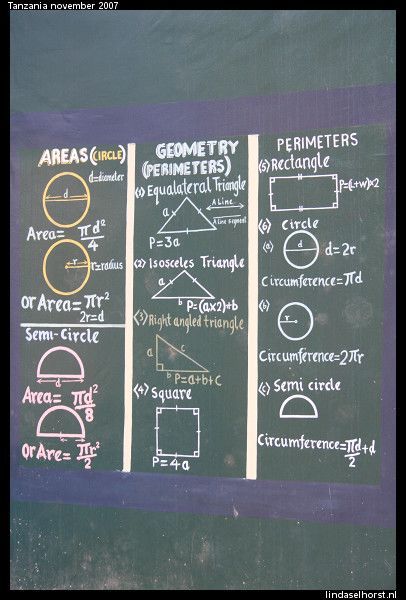 Tanzania november 2007
AREAS (CIRCLE)
d=diameter
d
Area= πd²/4
r
r=radius
or Area= πr²
2r=d
Semi-Circle
d
Area= πd²/8
r
Or Are= πr²/2
GEOMETRY
(PERIMETERS)
(1) Equalateral Triangle
A Line
A line segment
a
P=3a
(2) Isosceles Triangle
a
b
P=(ax2)+b
(3) Right angled triangle
a
c
b
P=a+b+c
(4) Square
P=4a
PERIMETERS
(5) Rectangle
P=(L+w)×2
(6) Circle
(a)
d
d=2r
Circumference=πd
(b)
r
Circumference=2πr
(c) Semi circle
Circumference=πd/2+d
lindaselhorst.nl